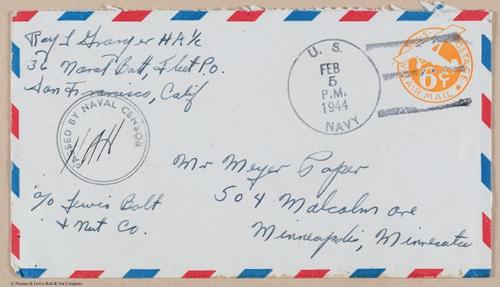 Roy L Granger HA 1/c
36 Naval Batt, Fleet P.O.
San Francisco, Calif
U. S.
FEB
5
P.M.
1944
NAVY
U.S. POSTAGE
6¢
VIA AIR MAIL
PASSED BY NAVAL CENSOR
Mr Meyer Paper
504 Malcolm ave
Minneapolis, Minnesota
c/o Lewis Bolt
& Nut Co.
© Pioneer & Lewis Bolt & Nut Company